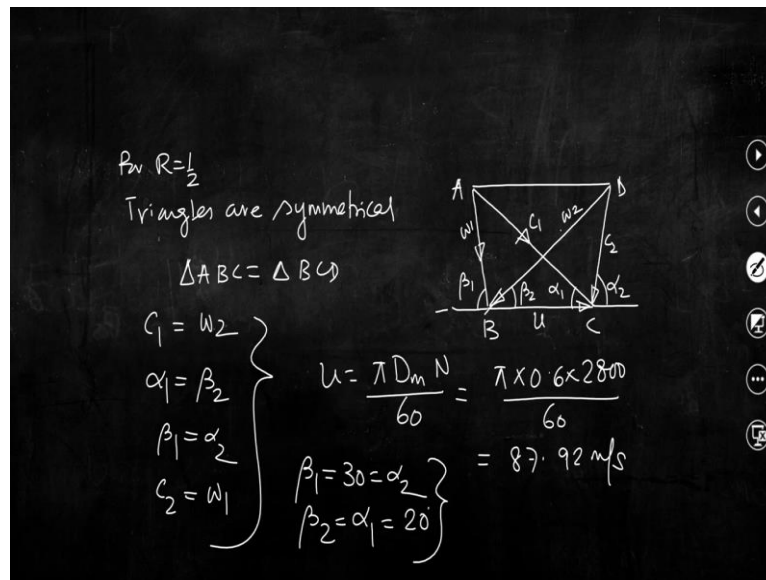 For R=1/2
Triangles are symmetrical
ΔABC = ΔBCD
C1 = W2
α1 = β2
β1 = α2
C2 = W1
A D
W1 C1 W2 C2
β1 β2 α1 α2
B U C
U = πDmN/60 = π×0.6×2800/60
= 87.92 m/s
β1 = 30 = α2
β2 = α1 = 20°